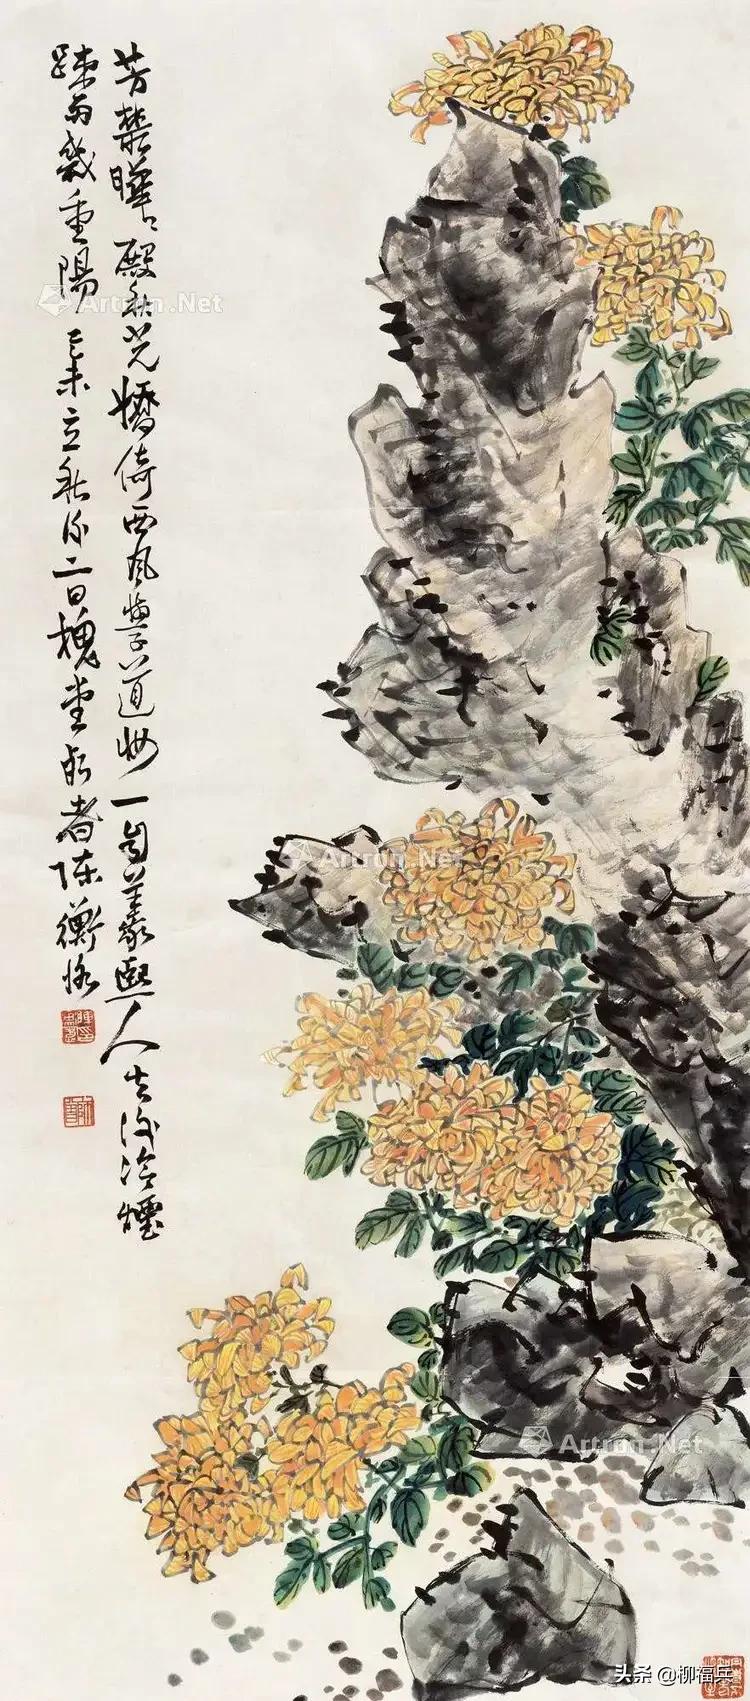 芳叢曄〻殿秋光嬌倚西風學道妝一自義熙人去後冷煙
疎雨幾重陽 己未立秋後二日槐堂朽者陳衡恪
Artron.Net
Artron.Net
Artron.Net
头条 @柳福兵